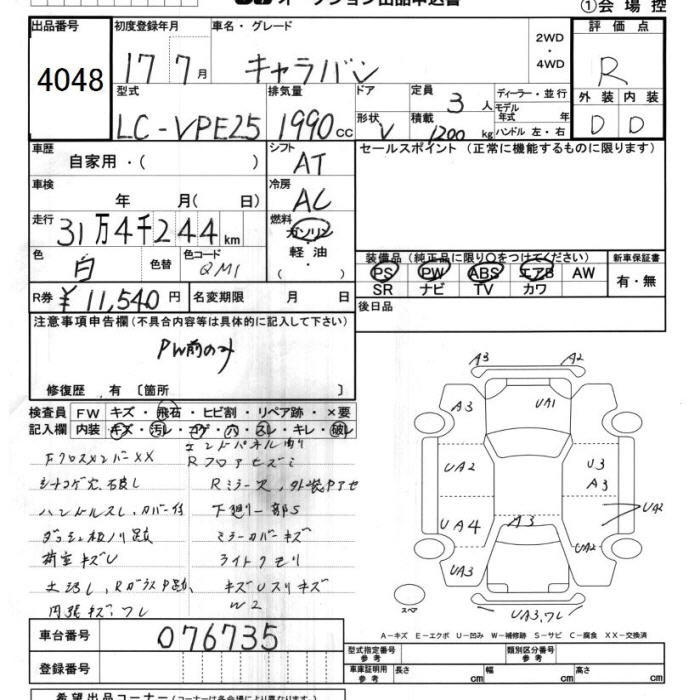 オークション出品申込書
①会場控
出品番号
4048
初度登録年月
17 7月
車名・グレード
キャラバン
2WD
・
4WD
評価点
R
外装 内装
D D
型式
LC-VPE25
排気量
1990cc
ドア
形状
V
定員
3人
積載
1200kg
ディーラー・並行
モデル
年式 年
ハンドル 左・右
車歴
自家用・( )
シフト
AT
セールスポイント (正常に機能するものに限ります)
車検
年 月( 日)
冷房
AC
走行
31万4千244km
燃料
ガソリン
軽油
・
( )
色
白
色替
色コード
QM1
装備品 (純正品に限り○をつけてください)
PS PW ABS エアB AW
SR ナビ TV カワ
新車保証書
有・無
R券 ¥11,540円
名変期限 月 日
後日品
注意事項申告欄 (不具合内容等は具体的に記入して下さい)
PW前のみ
修復歴 . 有 〔箇所 〕
検査員 FW キズ・飛石・ヒビ割・リペア跡・×要
記入欄 内装 キズ・汚レ・コゲ・穴・スレ・キレ・破レ
FクロスメンバーXX
シートコゲ穴
ハンドルスレ、カバー付
荷室キズU
エンドパネル
Rミラー
下廻り一部S
ミラーカバーキズ
ライトクモリ
キズUスリキズ
W2
A3 A2
A3 UA1
UA2 U3
A3
UA2
UA4 A3
UA2
UA3 UA3
UA3,ワレ
スペ
A-キズ E-エクボ U-凹み W-補修跡 S-サビ C-腐食 XX-交換済
車台番号
076735
登録番号
型式指定番号
参考
類別区分番号
参考
車庫証明用
参考
長さ cm
幅 cm
高さ cm
希望出品コーナー(コーナー名は各会場により異なります。)